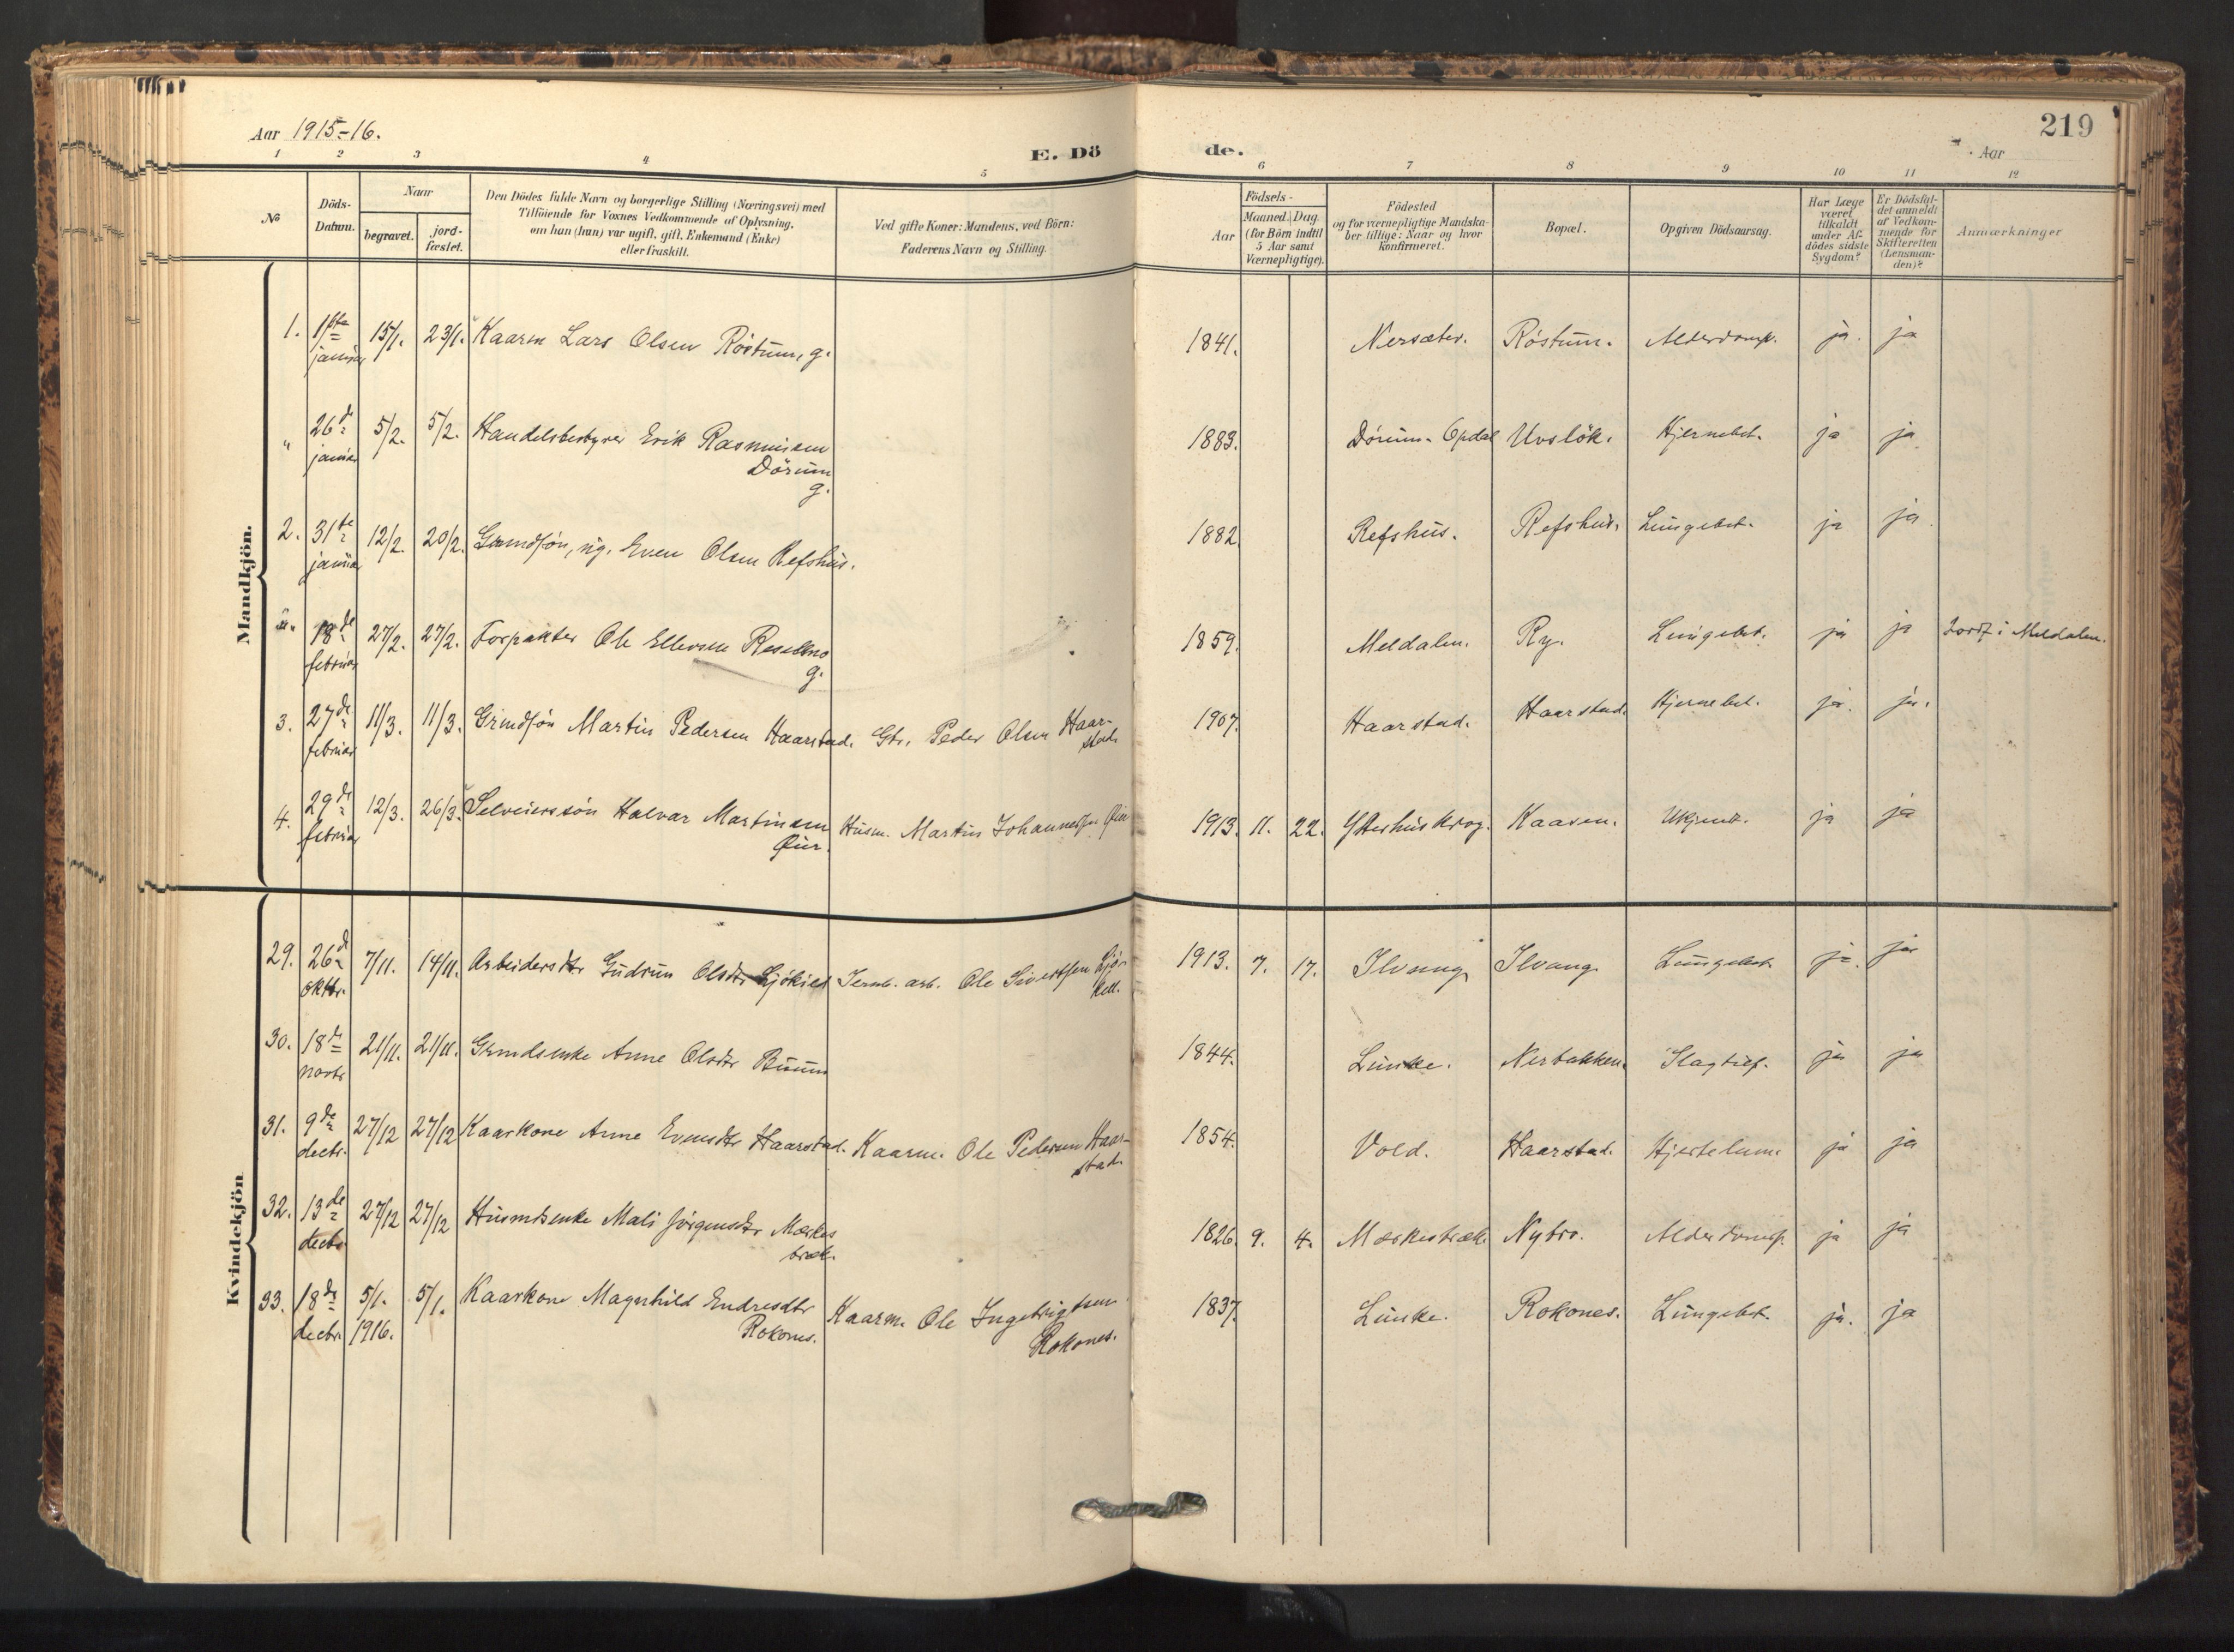 Aar 1915-16.
E. Dö
de.
219
Aar
1 2 3 4 5 6 7 8 9 10 11 12
No
Döds-
Datum.
Naar
begravet.
jord-
fæstet.
Den Dödes fulde Navn og borgerlige Stilling (Næringsvei) med
Tilföiende for Voxnes Vedkommende af Oplysning,
om han (hun) var ugift, gift, Enkemand (Enke)
eller fraskilt.
Ved gifte Koner: Mandens, ved Börn:
Faderens Navn og Stilling.
Födsels-
Aar
Maaned. Dag.
(for Börn indtil
5 Aar samt
Værnepligtige).
Födested
og for værnepligtige Mandska-
ber tillige: Naar og hvor
Konfirmeret.
Bopæl.
Opgiven Dödsaarsag.
Har Læge
været
tilkaldt
under Af-
dödes sidste
Sygdom?
Er Dödsfal-
det anmeldt
af Vedkom-
mende for
Skifteretten
(Lensman-
den)?
Anmærkninger
Mandkjön.
1. 1ste januar 15/1. 23/1. Kaarm Lars Olsen Röstum, g. 1841. Nersæter. Röstum. Alderdomsv. ja. ja
" 26de januar 5/2. 5/2. Handelsbestyrer Erik Rasmussen
Dörum
g. 1883. Dörum. Opdal Uvslök. Hjernebet. ja ja
2. 31te januar 12/2. 20/2. Grmdsön, ug. Even Olsen Refshus. 1882. Refshus. Refshus. Lungebet. ja ja.
". 18de februar 27/2. 27/2. Forpakter Ole Ellevsen Resellmo
g. 1859. Meldalen. Ry. Lungebet. ja ja Jordf i Meldalen.
3. 27de februar 11/3. 11/3. Grmdsön Martin Pedersen Haarstad. Gbr. Peder Olsen Haar-
stad. 1907. Haarstad. Haarstad. Hjernebet. ja. ja.
4. 29de februar 12/3. 26/3. Selveiersön Halvar Martinsen
Øien. Husm. Martin Johannessen Øien 1913. 11. 22. Ytterhuskrog. Kaasen. Ukjendt. ja ja
Kvindekjön
29. 26de oktbr. 7/11. 14/11. Arbeidersdtr Gudrun Olsdtr Ljökjel Jernb. arb. Ole Sivertsen Ljö-
kell. 1913. 7. 17. Ilvang Ilvang. Lungebet. ja. ja
30. 18de novbr 21/11. 21/11. Grmdsenke Anne Olsdtr Buum 1844. Lunke. Nerbakken. Slagtilf. ja ja
31. 9de decbr. 27/12 27/12 Kaarkone Anne Evensdtr Haarstad. Kaarm. Ole Pedersen Haar-
stad. 1854. Vold. Haarstad. Hjertelam. ja ja
32. 13de decbr 27/12 27/12 Husmdsenke Mali Jörgensdtr Mærkes
bræk. 1826. 9. 4. Mærkesbræk. Nybro. Alderdomsv. ja ja
33. 18de decbr. 5/1. 1916. 5/1. Kaarkone Magnhild Endresdtr
Rokones. Kaarm. Ole Ingebrigtsen
Rokones. 1837. Lunke. Rokones. Lungebet. ja. ja